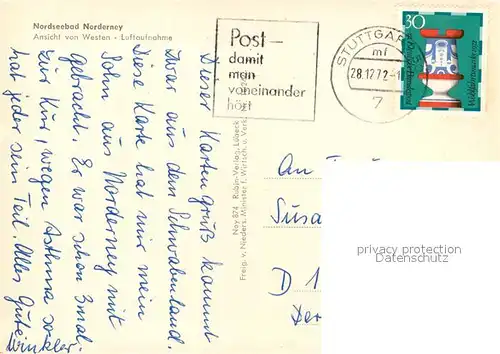 Nordseebad Norderney
Ansicht von Westen - Luftaufnahme
Post-
damit
man
voneinander
hört
STUTTGAR
mf
28.12.72-1
7
30
Deutsche Bundespost
Wohlfahrtsmarke 1972
Dieser Kartengruß kommt
zwar aus dem Schwabenland
Diese Karte hat mir mein
Sohn aus Norderney mit
gebracht. Er war schon 3mal
zur Kur, wegen Asthma so
hat jeder sein Teil. Alles Gute
Winkler
Noy 874 Rubin-Verlag, Lübeck
Freig. v. Nieders. Minister f. Wirtsch. u. Verk.
An
Susa
D 1
privacy protection
Datenschutz